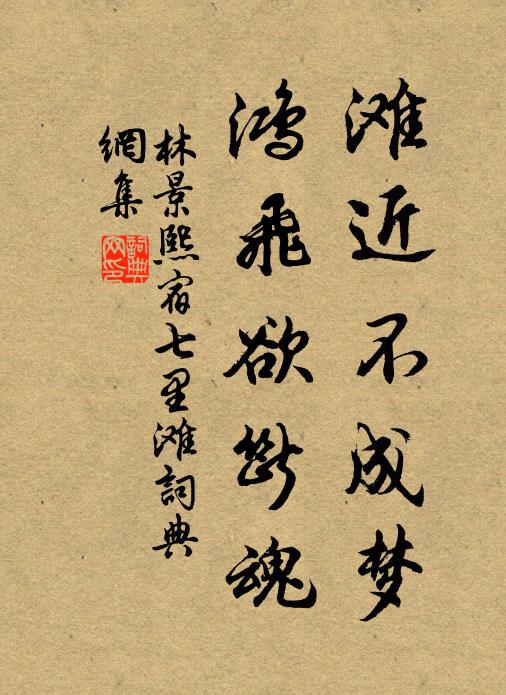 滩近不成梦
鸿飞欲断魂
林景熙宿七里滩詞典
網集
詞典
网印